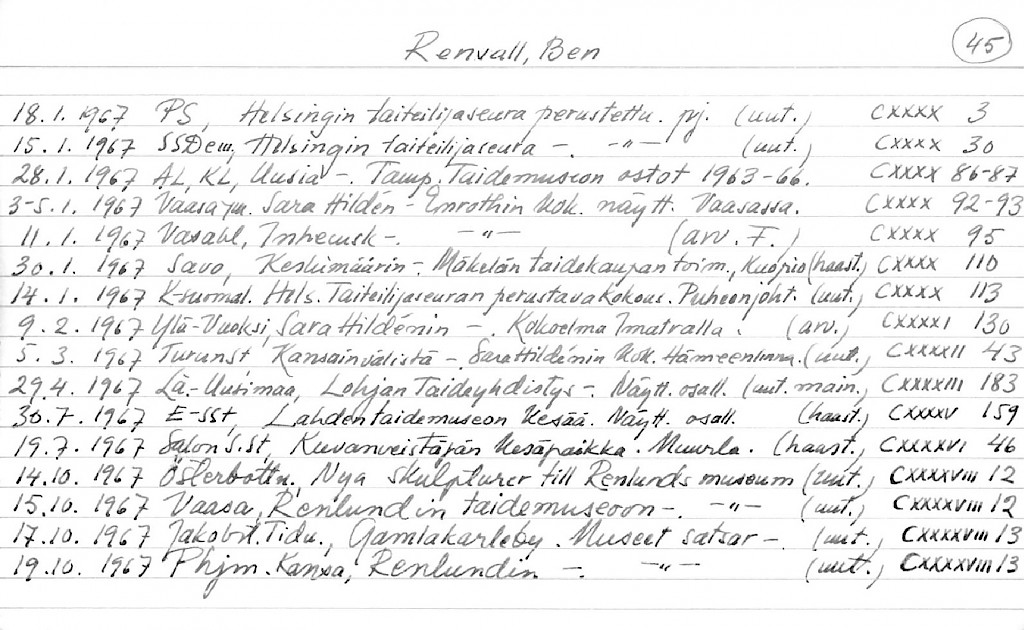 Renvall, Ben 45
18.1.1967 PS, Helsingin taiteilijaseura perustettu. pj. (uut.) CXXXX 3
15.1.1967 SSDem, Helsingin taiteilijaseura -. -"- (uut.) CXXXX 30
28.1.1967 AL, KL, Uusia -. Tamp. Taidemuseon ostot 1963-66. CXXXX 86-87
3-5.1.1967 Vaasa ym. Sara Hildén - Enrothin kok. näytt. Vaasassa. CXXXX 92-93
11.1.1967 Vasabl, Inhemsk -. -"- (arv. F.) CXXXX 95
30.1.1967 Savo, Keskimäärin -. Mäkelän taidekaupan toim., Kuopio (haast.) CXXXX 110
14.1.1967 K-suomal. Hels. Taiteilijaseuran perustava kokous. Puheenjoht. (uut.) CXXXX 113
9.2.1967 Ylä-Vuoksi, Sara Hildénin -. Kokoelma Imatralla. (arv.) CXXXXI 130
5.3.1967 Turunst Kansainvälistä - Sara Hildénin kok. Hämeenlinna. (uut.) CXXXXII 43
29.4.1967 Lä.-Uusimaa, Lohjan Taideyhdistys -. Näytt. osall. (uut. main.) CXXXXIII 183
30.7.1967 E-SSt, Lahden taidemuseon kesää. Näytt. osall. (haast.) CXXXXV 159
19.7.1967 Salon S.St, Kuvanveistäjän kesäpaikka. Muurla. (haast.) CXXXXVI 46
14.10.1967 Österbottn, Nya skulpturer till Renlunds museum (uut.) CXXXXVIII 12
15.10.1967 Vaasa, Renlundin taidemuseoon -. -"- (uut.) CXXXXVIII 12
17.10.1967 Jakobst. Tidn., Gamlakarleby. Museet satsar -. (uut.) CXXXXVIII 13
19.10.1967 Phjm. Kansa, Renlundin -. -"- (uut.) CXXXXVIII 13